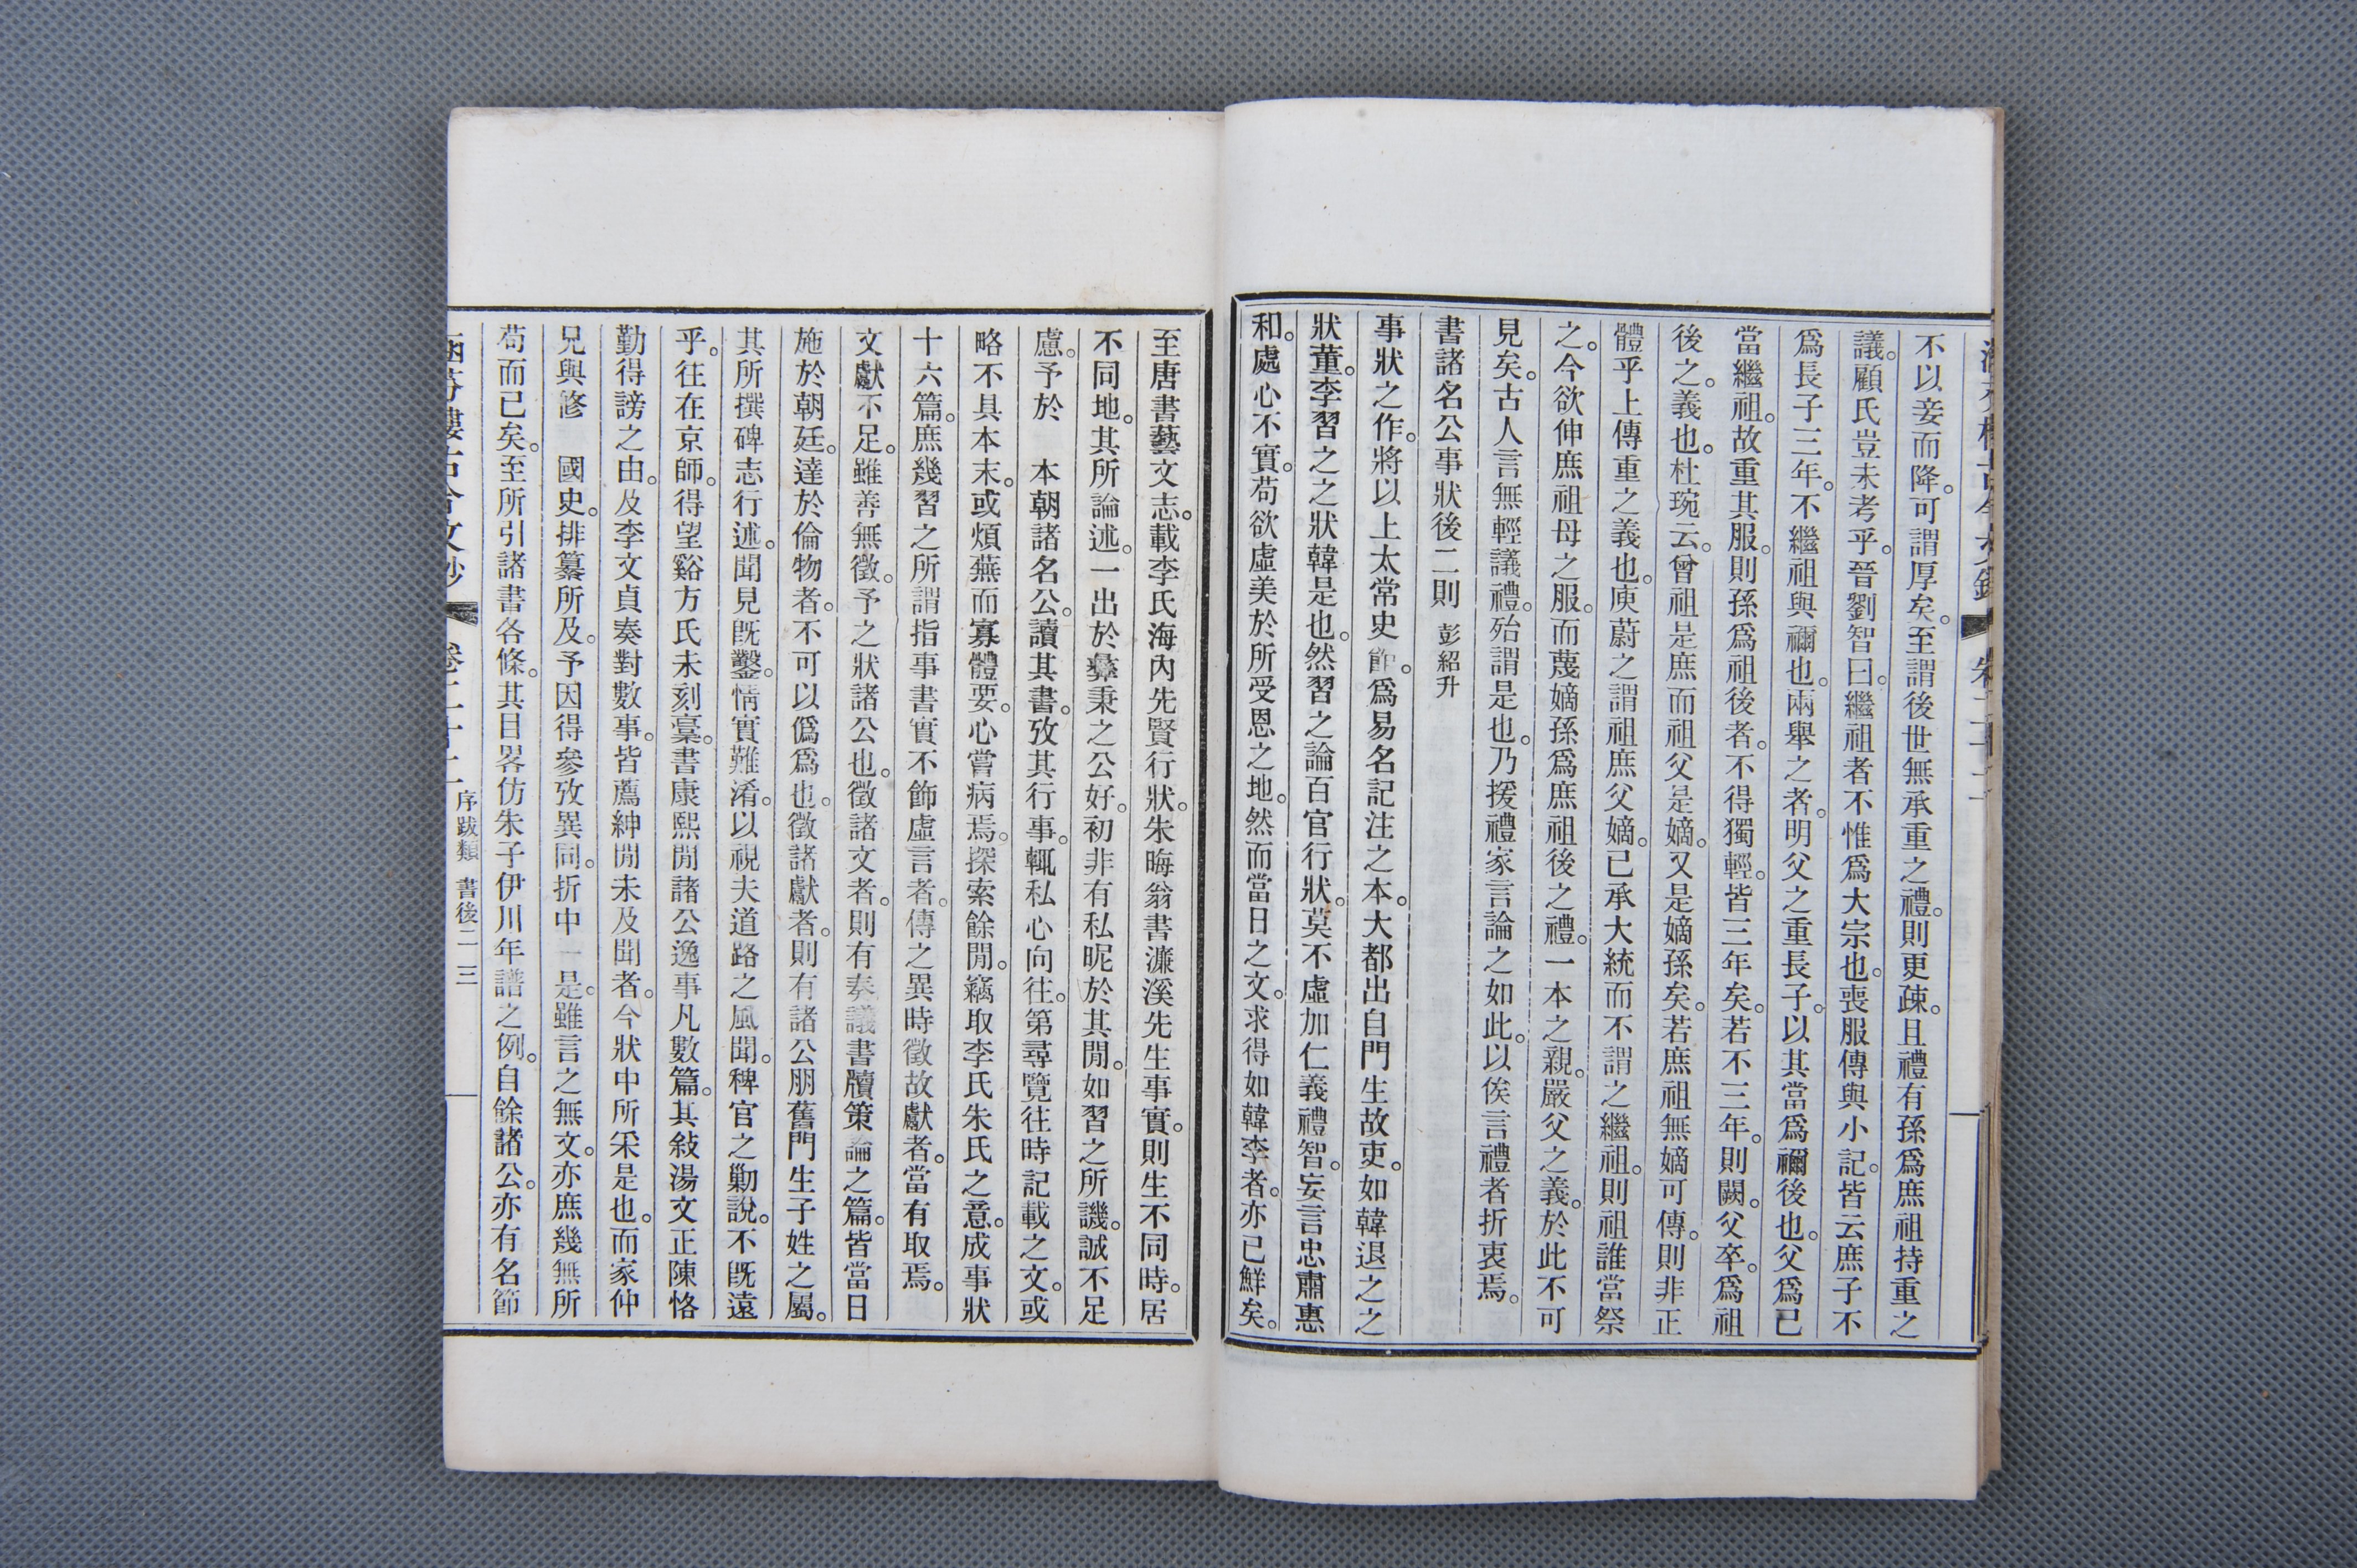 不以妾而降。可謂厚矣。至謂後世無承重之禮。則更疎。且禮有孫爲庶祖持重之
議。顧氏豈未考乎。晉劉智曰。繼祖者不惟爲大宗也。喪服傳與小記。皆云庶子不
爲長子三年。不繼祖與禰也。兩舉之者。明父之重長子。以其當爲禰後也。父爲己
當繼祖。故重其服。則孫爲祖後者。不得獨輕。皆三年矣。若不三年。則闕。父卒。爲祖
後之。義也。杜琬云。曾祖是庶而祖父是嫡。又是嫡孫矣。若庶祖無嫡可傳。則非正
體乎上傳重之義也。庾蔚之謂祖庶父嫡。已承大統而不謂之繼祖。則祖誰當祭
之。今欲伸庶祖母之服。而蔑嫡孫爲庶祖後之禮。一本之親。嚴父之義。於此不可
見矣。古人言無輕議禮。殆謂是也。乃援禮家言論之如此。以俟言禮者折衷焉。
書諸名公事狀後二則 彭紹升
事狀之作。將以上太常史館。爲易名記注之本。大都出自門生故吏。如韓退之之
狀董。李習之之狀韓是也。然習之論百官行狀。莫不虛加仁義禮智。妄言忠肅惠
和。處心不實。苟欲虛美於所受恩之地。然而當日之文。求得如韓李者。亦已鮮矣。
至唐書藝文志。載李氏海內先賢行狀。朱晦翁書濂溪先生事實。則生不同時。居
不同地。其所論述。一出於彝秉之公好。初非有私昵於其閒。如習之所譏。誠不足
慮。予於 本朝諸名公。讀其書。攷其行事。輒私心向往。第尋覽往時記載之文。或
略不具本末。或煩蕪而寡體要。心嘗病焉。探索餘閒。竊取李氏朱氏之意。成事狀
十六篇。庶幾習之所謂指事書實不飾虛言者。傳之異時徵故獻者。當有取焉。
文獻不足。雖善無徵。予之狀諸公也。徵諸文者。則有奏議書牘策論之篇。皆當日
施於朝廷。達於倫物者。不可以僞爲也。徵諸獻者。則有諸公朋舊門生子姓之屬。
其所撰碑志行述。聞見旣鑿。情實難淆。以視夫道路之風聞。稗官之勦說。不旣遠
乎。往在京師。得望谿方氏未刻稾。書康熙閒諸公逸事凡數篇。其敍湯文正陳恪
勤得謗之由。及李文貞奏對數事。皆薦紳閒未及聞者。今狀中所采是也。而家仲
兄與修 國史。排纂所及。予因得參攷異同。折中一是。雖言之無文。亦庶幾無所
苟而已矣。至所引諸書各條。其目畧仿朱子伊川年譜之例。自餘諸公。亦有名節
涵芬樓古今文鈔 卷二十二 序跋類 書後二 三